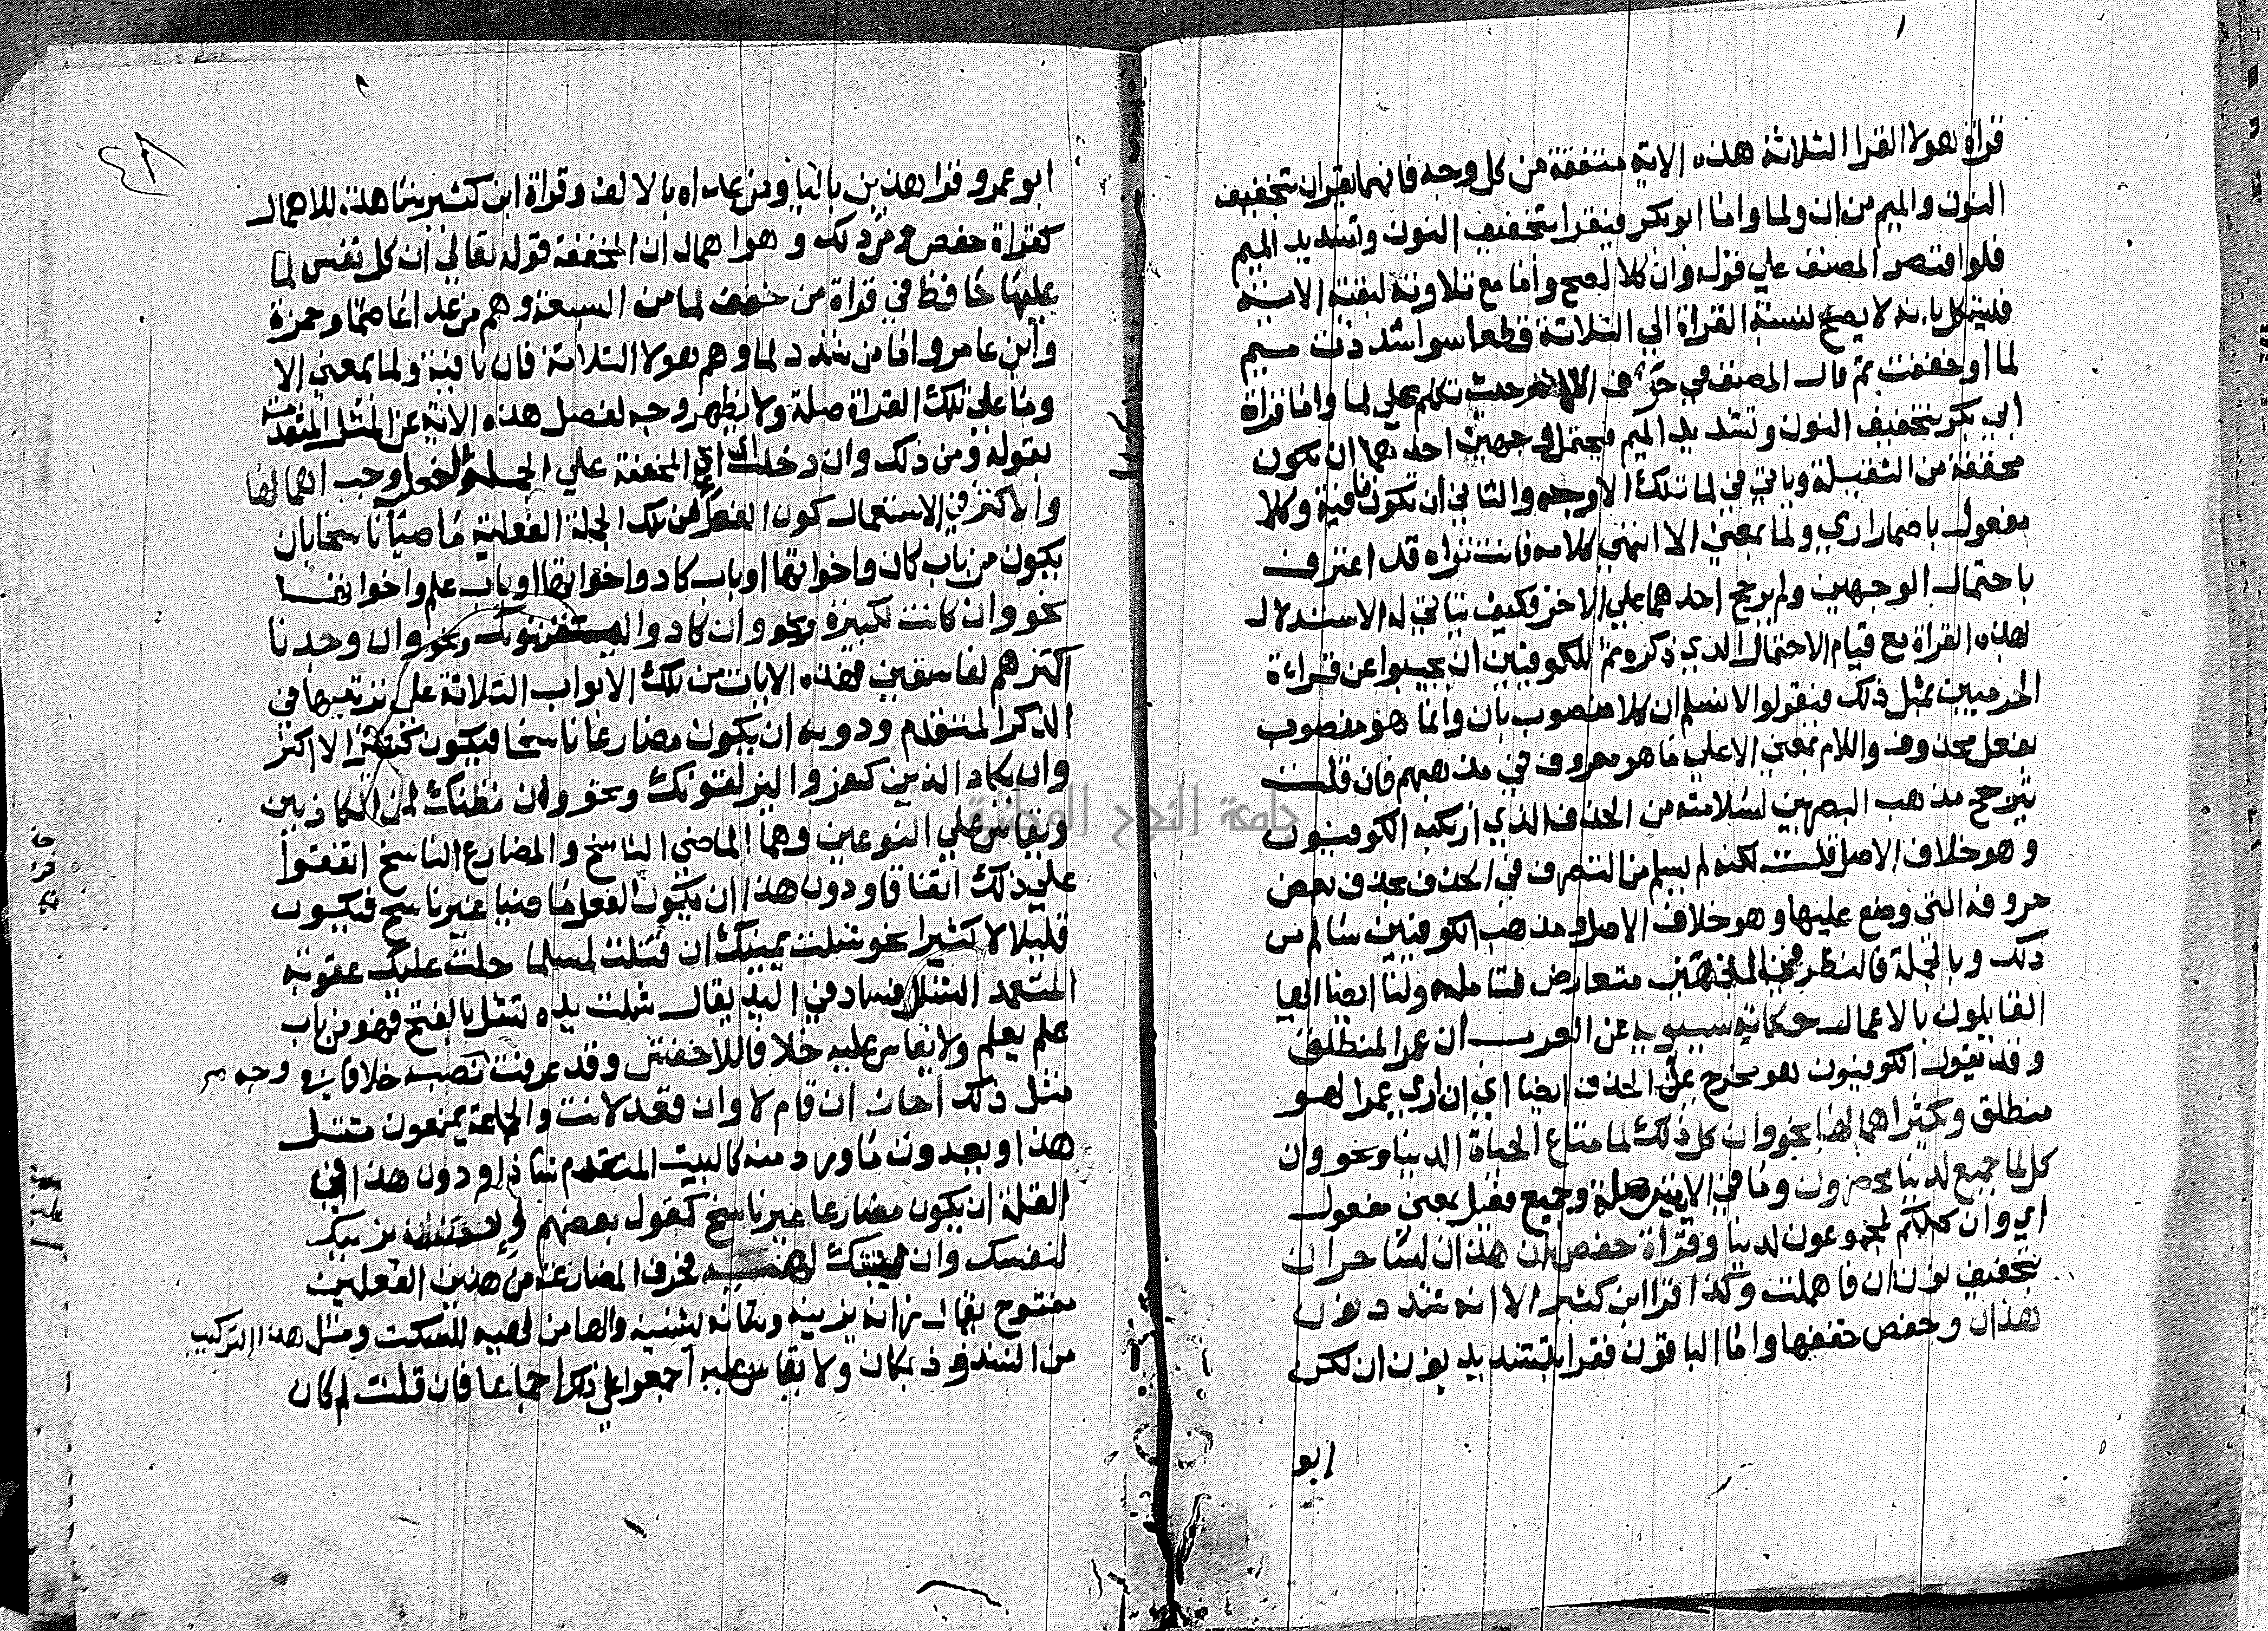 قراة هولا القرا الثلاثة هذه الاية متفقة من كل وجه فانهما يقران بتخفيف
النون والميم من ان ولما واما ابو بكر فيقرا بتخفيف النون وتشديد الميم
فلو اقتصر المصنف علي قوله وان كلا لصح واما مع تلاوته لبقية الاية
فليته لا يصح لنسبة القراة الي الثلاثة قطعا سوا شددت ميم
لما او خففت ثم قال المصنف في حرف حيث تكلم علي لما واما قراة
ابي بكر بتخفيف النون وتشديد الميم فيحتمل وجهين احدهما ان تكون
مخففة من الثقيلة وياتي في لما تلك الاوجه والثاني ان تكون نافية وكلا
مفعول باضمار اري ولما بمعني الا انتهي كلامه فانت تراه قد اعترف
باحتمال الوجهين ولم يرجح احدهما علي الاخر فكيف يتاتي له الاستدلال
بهذه القراة مع قيام الاحتمال الذي ذكره ثم للكوفيين ان يجيبوا عن قراءة
الحرميين بمثل ذلك فيقولوا لا نسلم ان كلا منصوب بان وانما هو منصوب
بفعل محذوف واللام بمعني الا علي ما هو معروف في مذهبهم فان قلت
يترجح مذهب البصريين لسلامته من الحذف الذي ارتكبه الكوفيون
وهو خلاف الاصل قلت لكنه لم يسلم من التصرف في الحذف بحذف بعض
حروفه التي وضع عليها وهو خلاف الاصل ومذهب الكوفيين سالم من
ذلك وبالجملة فالنظر في متعارض فتامله ولنا ايضا ايها
القايلون بالاعمال حكاية سيبويه عن العرب ان عمرا لمنطلق
وقد يقول الكوفيون هو مخرج علي الحذف ايضا اي ان اري عمرا لهو
منطلق وكثر اهمالها نحو وان كل ذلك لما متاع الحياة الدنيا ونحو وان
كل لما جميع لدينا محضرون وما في الايتين صلة وجميع فعيل بمعني مفعول
اي وان كلكم لمجموعون لدينا وقراة حفص ان هذان لساحران
بتخفيف نون ان فاهملت وكذا قرا ابن كثير الا انه شدد نون
هذان وحفص خففها واما الباقون فقرا بتشديد نون ان لكن
ابو
ابو عمرو قرا هذين باليا ومن عداه بالالف وقراة ابن كثير شاهدة للاهمال
كقراة حفص ومن ذلك وهو اهمال ان المخففة قوله تعالي ان كل نفس لما
عليها حافظ في قراة من خفف لما من السبعة وهم من عدا عاصما وحمزة
وابن عامر واما من شدد لما وهم هولا الثلاثة فان نافية ولما بمعني الا
وما علي تلك القراة صلة ولا يظهر وجه لفصل هذه الاية عن المثل المتقدمة
بقوله ومن ذلك وان دخلت ان اي المخففة علي الجملة الفعلية وجب اهمالها
والاكثر في الاستعمال كون الفعل من تلك الجملة الفعلية ماضيا ناسخا بان
يكون من باب كان واخواتها او باب كاد واخواتها او باب علم واخواتها
نحو وان كانت لكبيرة ونحو وان كادوا ليستفزونك ونحو وان وجدنا
اكثرهم لفاسقين فهذه الايات من تلك الابواب الثلاثة علي ترتيبها في
الذكر المتقدم ودونه ان يكون مضارعا ناسخا فيكون الاكثر
وان يكاد الذين كفروا ليزلقونك ونحو وان نظنك لمن الكاذبين
ويقاس علي النوعين وهما الماضي الناسخ والمضارع الناسخ اتفقوا
علي ذلك اتفاقا ودون هذا ان يكون الفعل ماضيا غير ناسخ فيكون
قليلا لا كثيرا نحو شلت يمينك ان قتلت لمسلما حلت عليك عقوبة
المتعمد الشلل فساد في اليد يقال شلت يده تشل بالفتح فهو من باب
علم يعلم ولا يقاس عليه خلافا للاخفش وقد عرفت نصب خلافا ووجهه
مثل ذلك اجاز ان قام لانا وان قعد لانت والجماعة يمنعون مثل
هذا ويعدون ما ورد منه كالبيت المتقدم شاذا ودون هذا في
القلة ان يكون مضارعا غير ناسخ كقول بعضهم يزينك
لنفسك وان لهيه فحرف المضارعة من هذين الفعلين
مفتوح يقال زانه يزينه وشانه يشينه والها من لهيه للسكت ومثل هذا التركيب
من الشذوذ بمكان ولا يقاس عليه اجمعوا علي ذلك اجماعا فان قلت لم كان